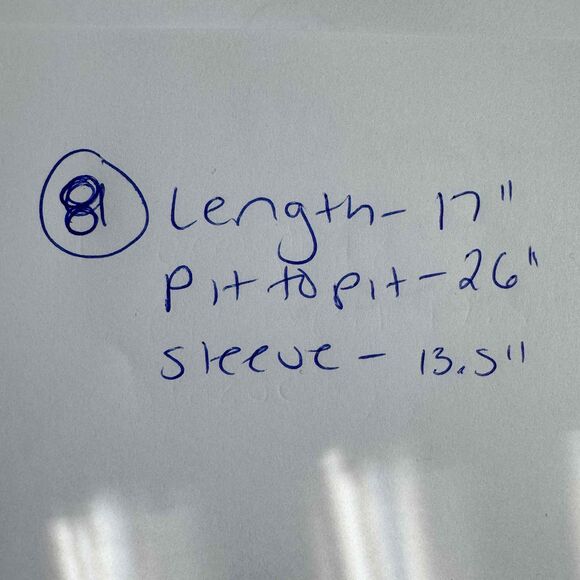 8 Length- 17"
Pit to pit - 26"
Sleeve - 13.5"